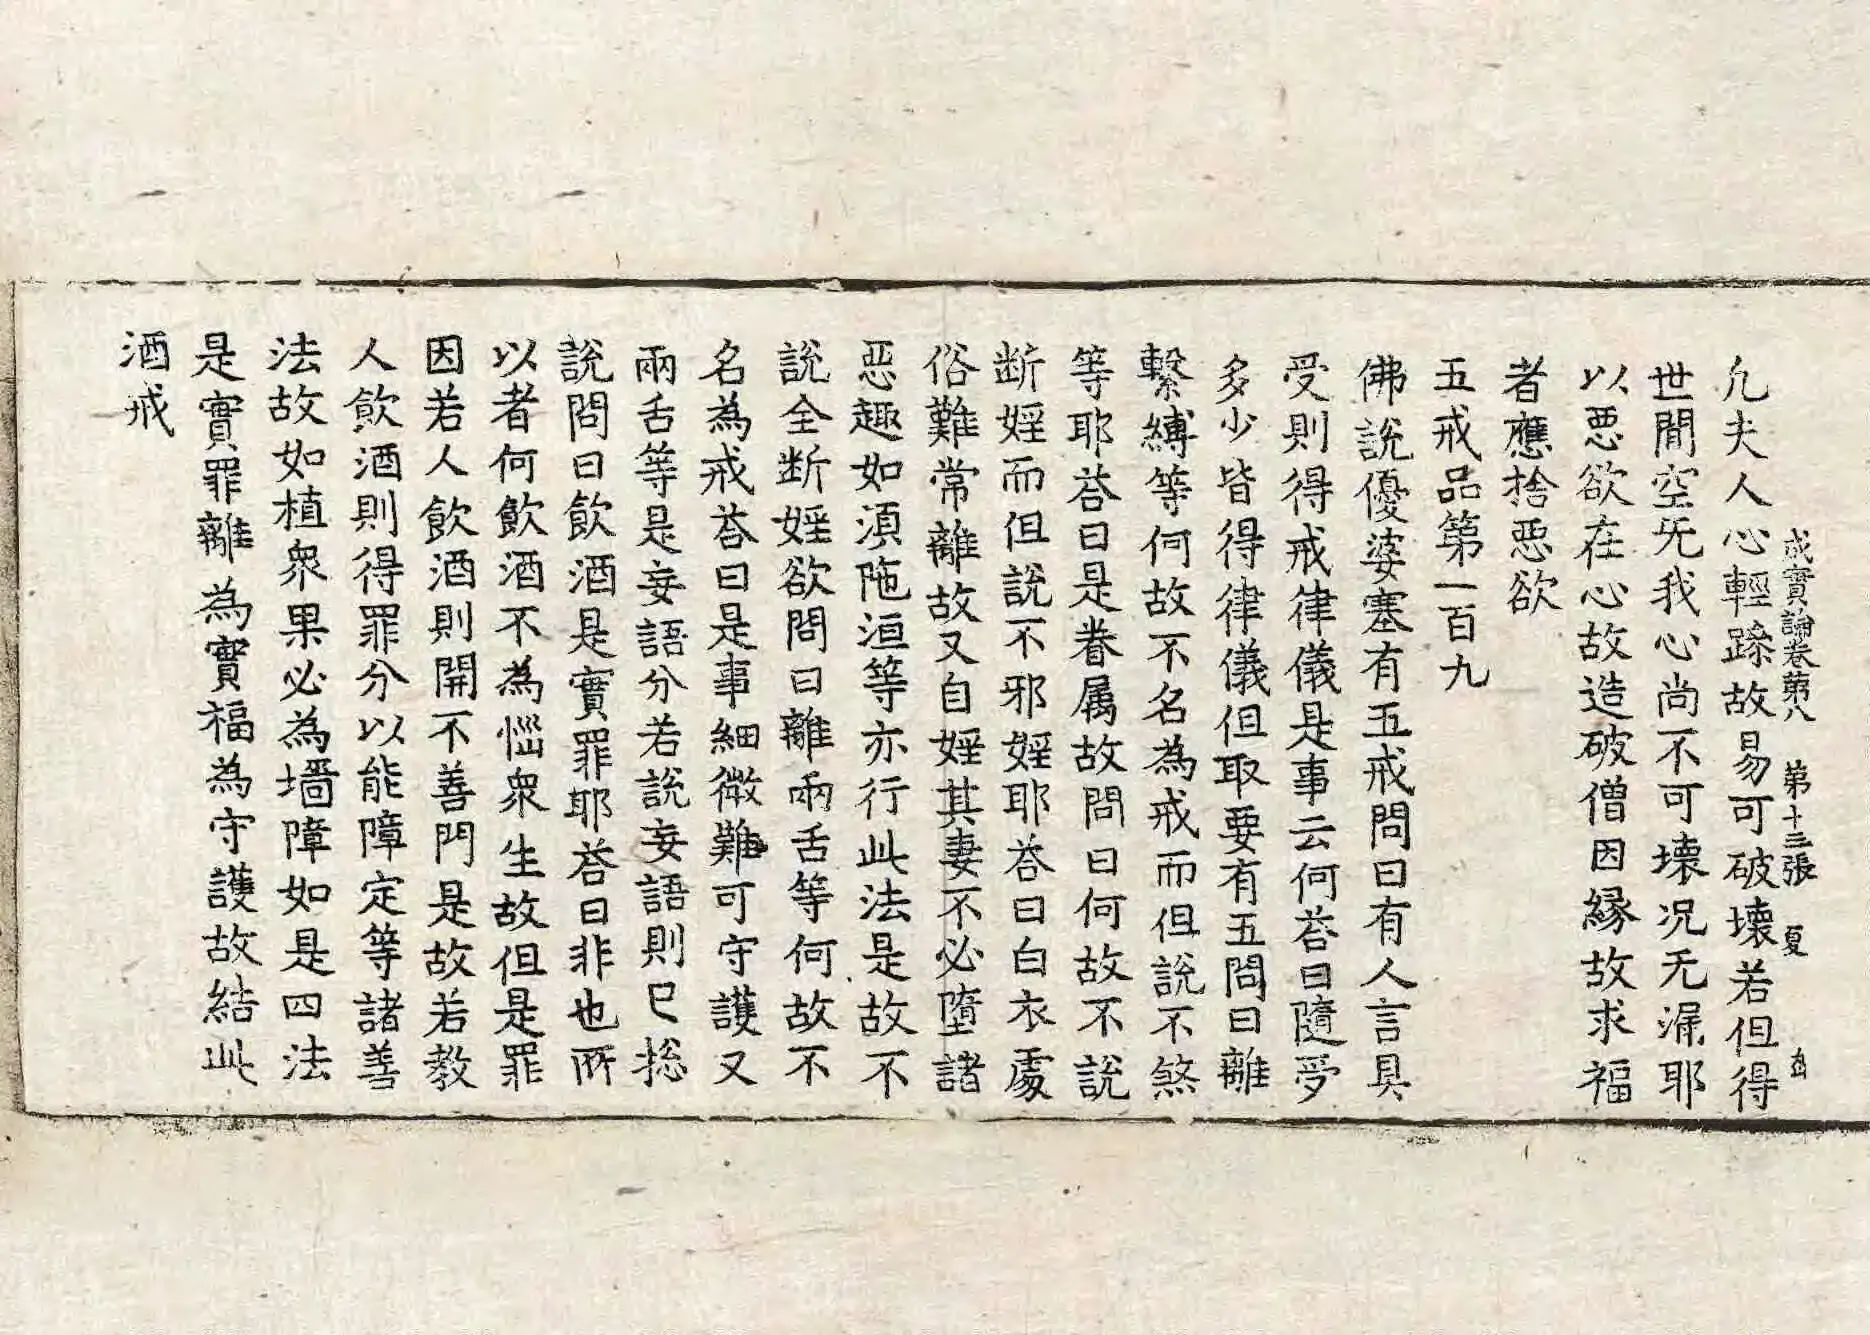 成實論卷第八 第十三張 夏
凢夫人心輕躁故易可破壞若但得
世閒空无我心尚不可壞况无漏耶
以惡欲在心故造破僧因緣故求福
者應捨惡欲
五戒品第一百九
佛說優婆塞有五戒問曰有人言具
受則得戒律儀是事云何荅曰隨受
多少皆得律儀但取要有五問曰離
繫縛等何故不名為戒而但說不煞
等耶荅曰是眷属故問曰何故不說
断婬而但說不邪婬耶荅曰白衣處
俗難常離故又自婬其妻不必墮諸
惡趣如須陁洹等亦行此法是故不
說全断婬欲問曰離兩舌等何故不
名為戒荅曰是事細微難可守護又
兩舌等是妄語分若說妄語則已捴
說問曰飲酒是實罪耶荅曰非也所
以者何飲酒不為惱衆生故但是罪
因若人飲酒則開不善門是故若教
人飲酒則得罪分以能障定等諸善
法故如植衆果必為墻障如是四法
是實罪離為實福為守護故結此
酒戒